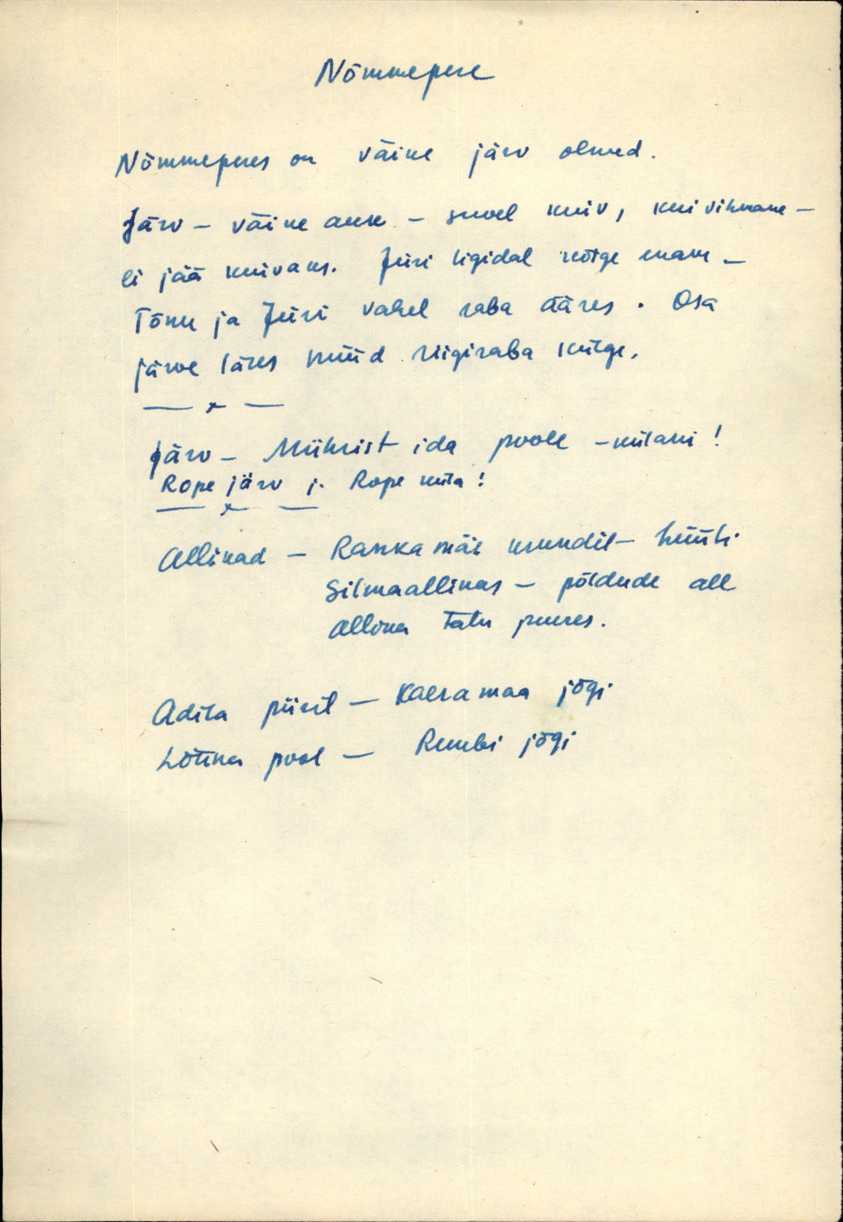 Nõmmepere
Nõmmeperes on väike järv olnud.
Järv – väike auk – suvel kuiv, kui vihmane –
ei jää kuivaks. Jüri ligidal kõige enam –
Tõnu ja Jüri vahel raba ääres. Osa
järve läres nüüd riigiraba külge.
— x —
Järv – Mührist ida poole – külani!
Rope järv j. Rope küla!
— x —
Allikad – Raskamäe krundil – hüüti
Silmaallikas – põldude all
Allika talu juures.
Adila piiril – Kaeramaa jõgi
Lõuna pool – Rumbi jõgi